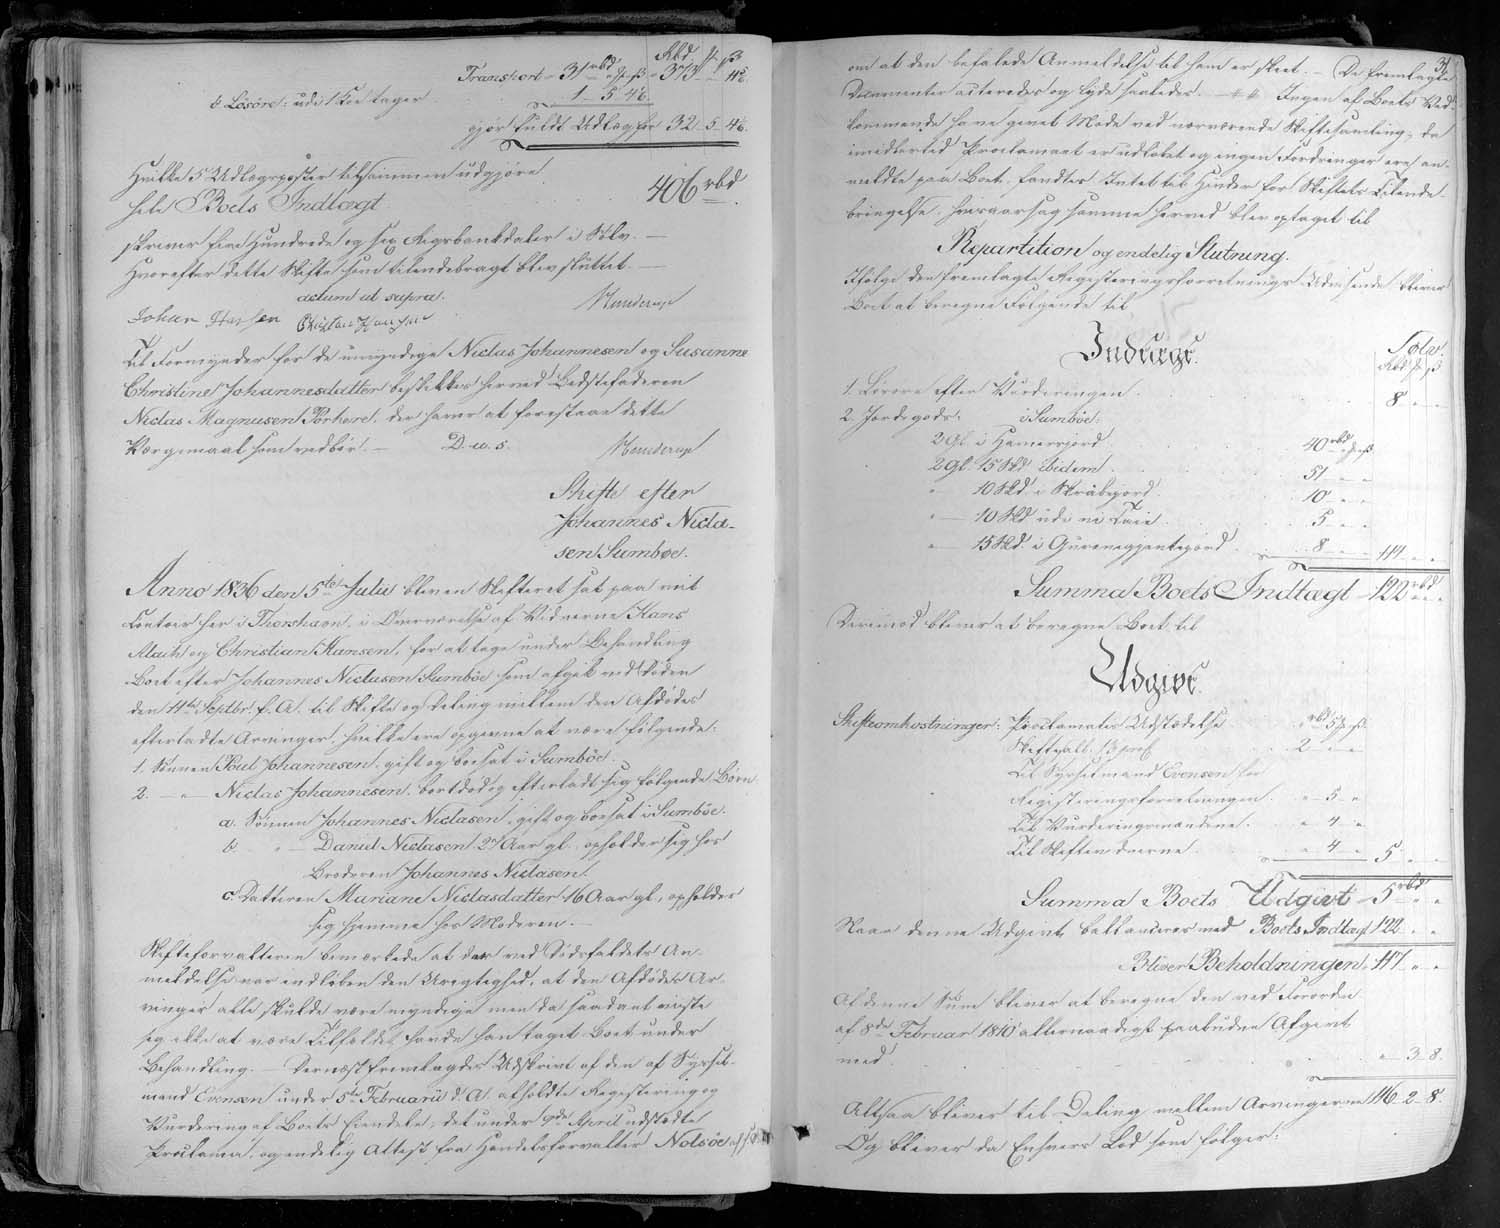 Rbd ₰ ß
Transport 31 rbd " ₰ " ß 373 " 1 " 11½
b Løsøre: udi 1 Koe tager 1 - 5 4½
gjør fuldt Udlæg for 32 - 5 - 4½.
Hvilke 5 Udlægsposter tilsammen udgjøre
hele Boets Indtægt 406 rbd
skriver fire Hundrede og sex Rigsbankdaler i Sølv. —
Hvorefter dette Skifte som tilendebragt blev sluttet. —
actum ut supra.
Johan Hansen Christian Hansen
Til Formynder for de umyndige Niclas Johannesen og Susanne
Christine Johannesdatter beskikkes herved Bedstefaderen
Niclas Magnusen Porkere, der haver at forestaae dette
Værgemaal som ved bør. — D. u. s.
Skifte efter
Johannes Nicla-
sen Sumbøe.
Anno 1836 den 5te Julii blev en Skifteret sat paa mit
Contoir her i Thorshavn, i Overværelse af Vidnerne Hans
og Christian Hansen, for at tage under Behandling
Boet efter Johannes Niclasen Sumbøe som afgik ved Døden
den 11te Septbr. f. A. til Skifte og Deling mellem den Afdødes
efterladte Arvinger, hvilke ere opgivne at være følgende:
1. Sønnen Poul Johannesen, gift og boesat i Sumbøe.
2. — " — Niclas Johannesen, bortdød og efterladt sig følgende Børn
a. Sønnen Johannes Niclasen, gift og boesat i Sumbøe.
b. " — Daniel Niclasen 27 Aar gl., opholder sig hos
Broderen Johannes Niclasen.
c. Datteren Mariane Niclasdatter 16 Aar gl., opholder
sig hjemme hos Moderen. —
Skifteforvalteren bemærkede at der ved Dødsfaldets An-
meldelse var indløben den Urigtighed, at den Afdødes Ar-
vinger alle skulde være myndige men da saadant viiste
sig ikke at være Tilfældet havde han taget Boet under
Behandling. — Dernæst fremlagdes Udskrivt af den af Syssel-
mand Evensen under 5te Februarii d. A. afholdte Registering og
Vurdering af Boets Eiendele; det under April udstædte
Proclama, og endelig Attest fra Handelsforvalter Nolsøe
om at den befalede Anmeldelse til ham er skeet. — De fremlagte
Documenter acteredes og lyde saaledes. — Ingen af Boets Ved-
kommende have givet Møde ved nærværende Skiftesamling; da
imidlertid Proclamaet er udløbet og ingen Fordringer ere an-
meldte paa Boet, fandtes Intet til Hinder for Skiftets Tilende-
bringelse, hvisaarsag samme herved blev optaget til
Repartition og endelig Slutning.
Ifølge den fremlagte Registeringsforretnings Udvisende bliver
Boet at beregne Følgende til
Indtægt.
Sølv.
Rbd ₰ ß
1. Løsøre efter Vurderingen 8 " "
2. Jordegods: i Sumbøe:
2 Gl. i Hamersjord 40 rbd " ₰ " ß
2 Gl. 15 Skd ibidem 51 " "
" — 10 Skd i 10 " "
" — 10 Skd ude 5 " "
" — 15 Skd. i 8 " " 114 " "
Summa Boets Indtægt 122 rbd " "
Derimod bliver at beregne Boet til
Udgivt.
Skifteomkostninger: Proclamates Udstædelse " rbd 5 ₰ " ß
2 " "
Til Sysselmand Evensen for
Registeringsforretningen " 5 "
Til Vurderingsmændene " 4 "
Til Skiftevidnerne " 4 " 5 " "
Summa Boets Udgivt 5 rbd " "
Naar denne Udgivt ballanceres med Boets Indtægt 122 " "
Bliver Beholdningen 117 " "
Af denne Sum bliver at beregne den ved Forordn
af 8de Februar 1810 allernaadigst paabudne Afgivt
med " 3 8.
Altsaa bliver til Deling mellem Arvingerne 116 - 2 - 8.
Og bliver da Enhvers Lod som følger: